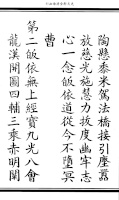 陶懸黍米駕法橋接引塵囂
放慈光施慧力拔度幽牢志
心一念皈依道從今不墮冥
曹
第二皈依無上經寶九光八會
龍漢開圖四輔三乘赤明闡